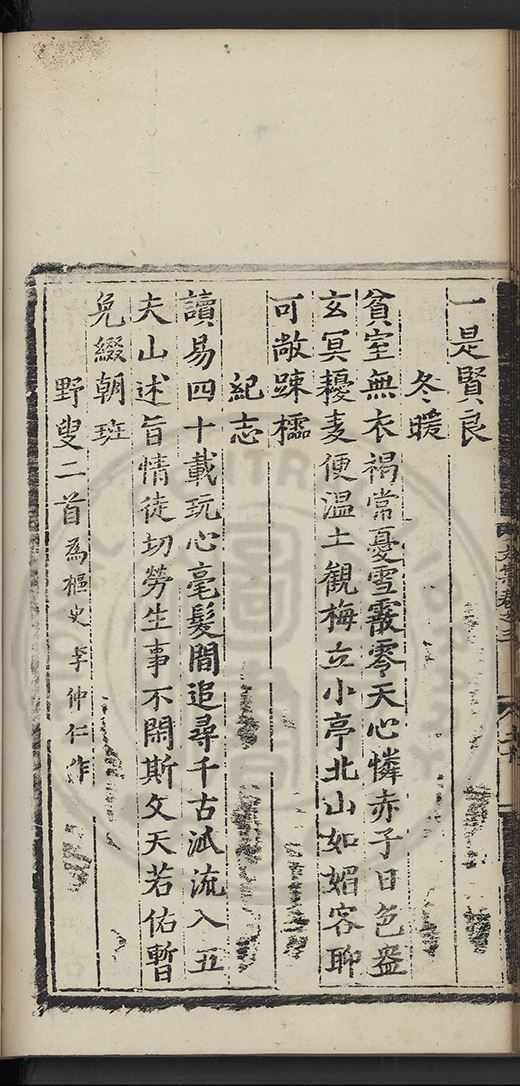 一是賢良
冬暖
貧室無衣褐常憂雪霰零天心憐赤子日色盎
玄冥擾麦便温土観梅立小亭北山如媚客聊
可敞踈櫺
紀志
讀易四十載玩心毫髮間追尋千古派流入五
夫山述旨情徒切勞生事不閑斯文天若佑暫
免綴朝班
野叟二首為樞史李仲仁作